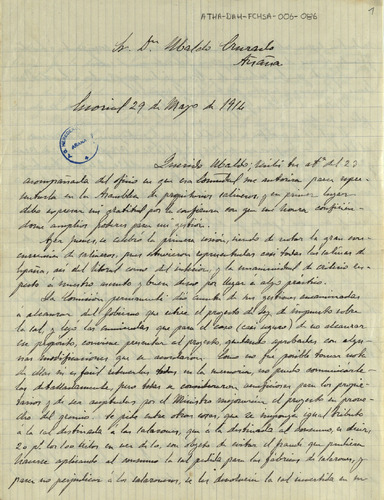 ATHA-DAH-FCHSA-006-086
1
Sr. Dn. Ubaldo
Añana
29 de Mayo de 1914
Querido Ubaldo, recibí tu atª del 23
acompañada del oficio en que esa Comunidad me autoriza para repre-
sentarla en la Asamblea de propietarios salineros, y en primer lugar
debo expresar mi gratitud por la confianza con que me honra confirién-
dome amplios poderes para mi gestión.
Ayer jueves, se celebró la primera sesión, siendo de notar la gran con-
currencia de salineros, pues estuvieron representadas casi todas las salinas de
España, así del litoral como del interior, y la unanimidad de criterio res-
pecto a nuestro asunto y buen deseo por llegar a algo práctico.
La Comisión permanente dio cuenta de sus gestiones encaminadas
a alcanzar del Gobierno que retire el proyecto de Ley de impuesto sobre
la sal, y leyó las enmiendas que para el caso de no alcanzar
ese propósito, conviene presentar al proyecto, quedando aprobadas con algu-
nas modificaciones que se acordaron. Como no fue posible tomar nota
de ellas ni es fácil retenerlas todas en la memoria, no puedo comunicarte-
las detalladamente, pero todas se consideraron beneficiosas para los propie-
tarios y de ser aceptadas por el Ministro mejorarían el proyecto en prove-
cho del gremio. Se pide entre otras cosas, que se imponga igual tributo
a la sal destinada a las salazones, que a la destinada al consumo, es decir,
2
con objeto de evitar el fraude que pudiera
hacerse aplicando al consumo la sal pedida para las fábricas de salazones, y
para no perjudicar a los salazoneros, se les devolviera la sal invertida en su